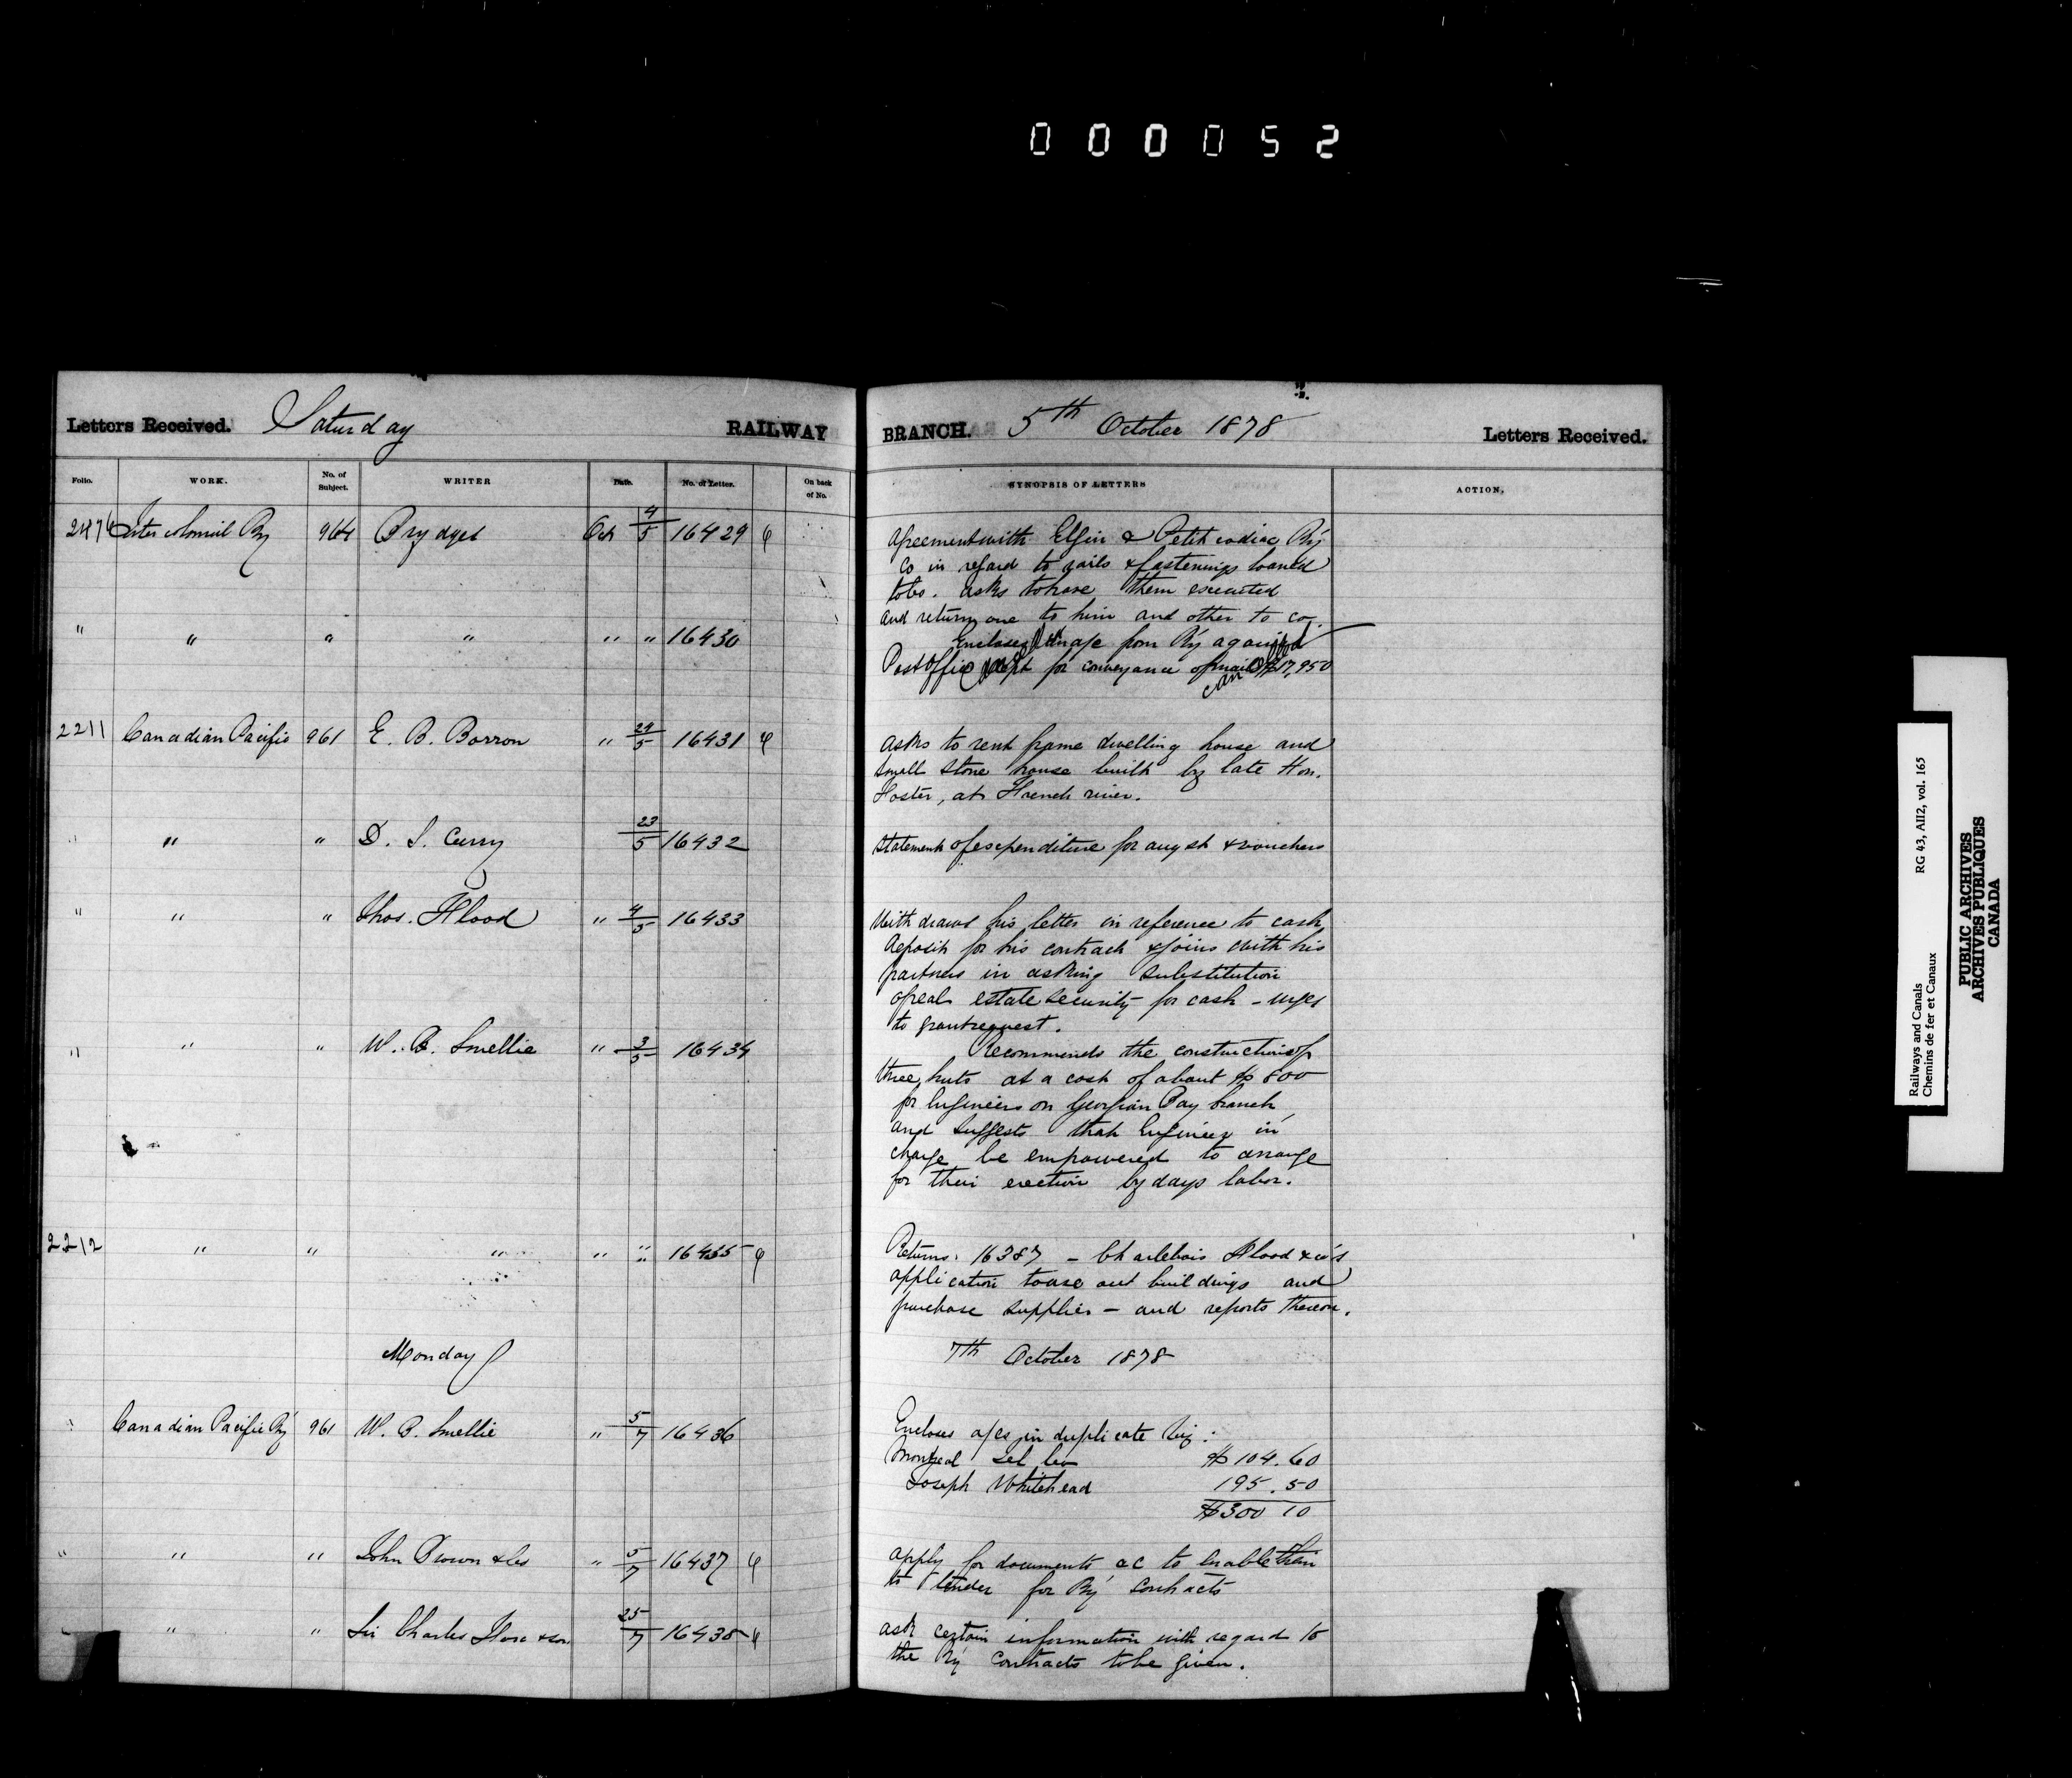 000052
Letters Received. Saturday RAILWAY BRANCH. 5th October 1878 Letters Received.
Folio. WORK. No. of Subject. WRITER Date. No. of Letter. On back of No. SYNOPSIS OF LETTERS ACTION.
2476 Intercolonial Ry 964 Brydges Oct 4/5 16429 Agreement with Elgin & Petitcodiac Ry
Co in regard to rails & fastenings loaned
to Co. asks to have them executed
and return one to him and other to co.
" " " " " " 16430 Encloses from Ry against
Post Office Dept for conveyance of mails $17,950
2211 Canadian Pacific 961 E. B. Borron " 24/5 16431 asks to rent frame dwelling house and
small stone house built by late Hon.
Foster, at French river.
" " " D. S. Curry 23/5 16432 Statement of expenditure for augst & vouchers
" " " Thos. Flood " 4/5 16433 Withdraws his letter in reference to cash
deposit for his contract & joins with his
partners in asking substitution
of real estate security for cash - urges
to grant request.
" " " W. B. Smellie " 3/5 16434 Recommends the construction of
three huts at a cost of about $800
for Engineers on Georgian Bay branch
and suggests that Engineer in
charge be empowered to arrange
for their erection by days labor.
2212 " " " " " 16435 Returns 16387 - Charlebois Flood & co's
application to use out buildings and
purchase supplies - and reports thereon.
Monday 7th October 1878
" Canadian Pacific Ry 961 W. B. Smellie " 5/7 16436 Encloses a/cs in duplicate viz:
Montreal Tel Co $104.60
Joseph Whitehead 195.50
$300 10
" " " John Brown & Co " 5/7 16437 apply for documents &c to enable them
to tender for Ry contracts
" " " Sir Charles & son 25/7 16438 ask certain information with regard to
the Ry contracts to be given.
Railways and Canals RG 43, AII2, vol. 165
Chemins de fer et Canaux
PUBLIC ARCHIVES
ARCHIVES PUBLIQUES
CANADA